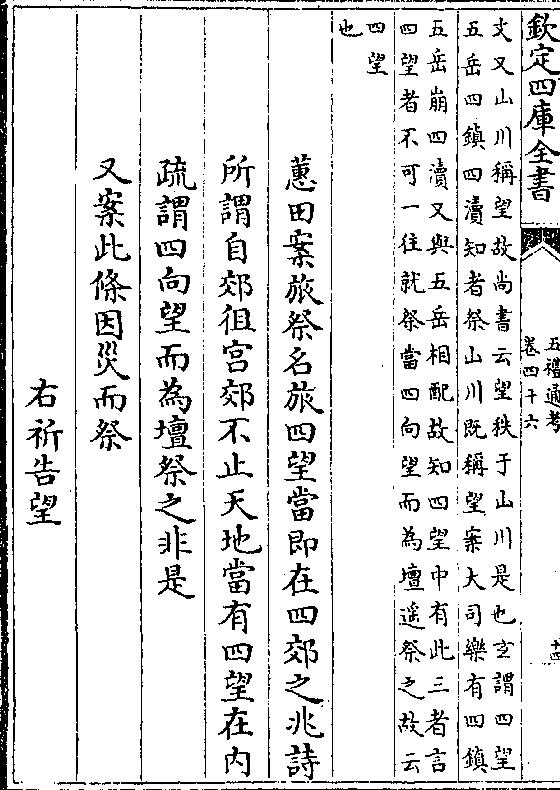 欽定四庫全書
五禮通考
卷四十六
十四
文又山川稱望故尚書云望秩于山川是也玄謂四望
五岳四鎮四瀆知者祭山川既稱望案大司樂有四鎮
五岳崩四瀆又與五岳相配故知四望中有此三者言
四望者不可一往就祭當四向望而為壇遥祭之故云
四望
也
蕙田案旅祭名旅四望當即在四郊之兆詩
所謂自郊徂宫郊不止天地當有四望在内
疏謂四向望而為壇祭之非是
又案此條因災而祭
右祈告望